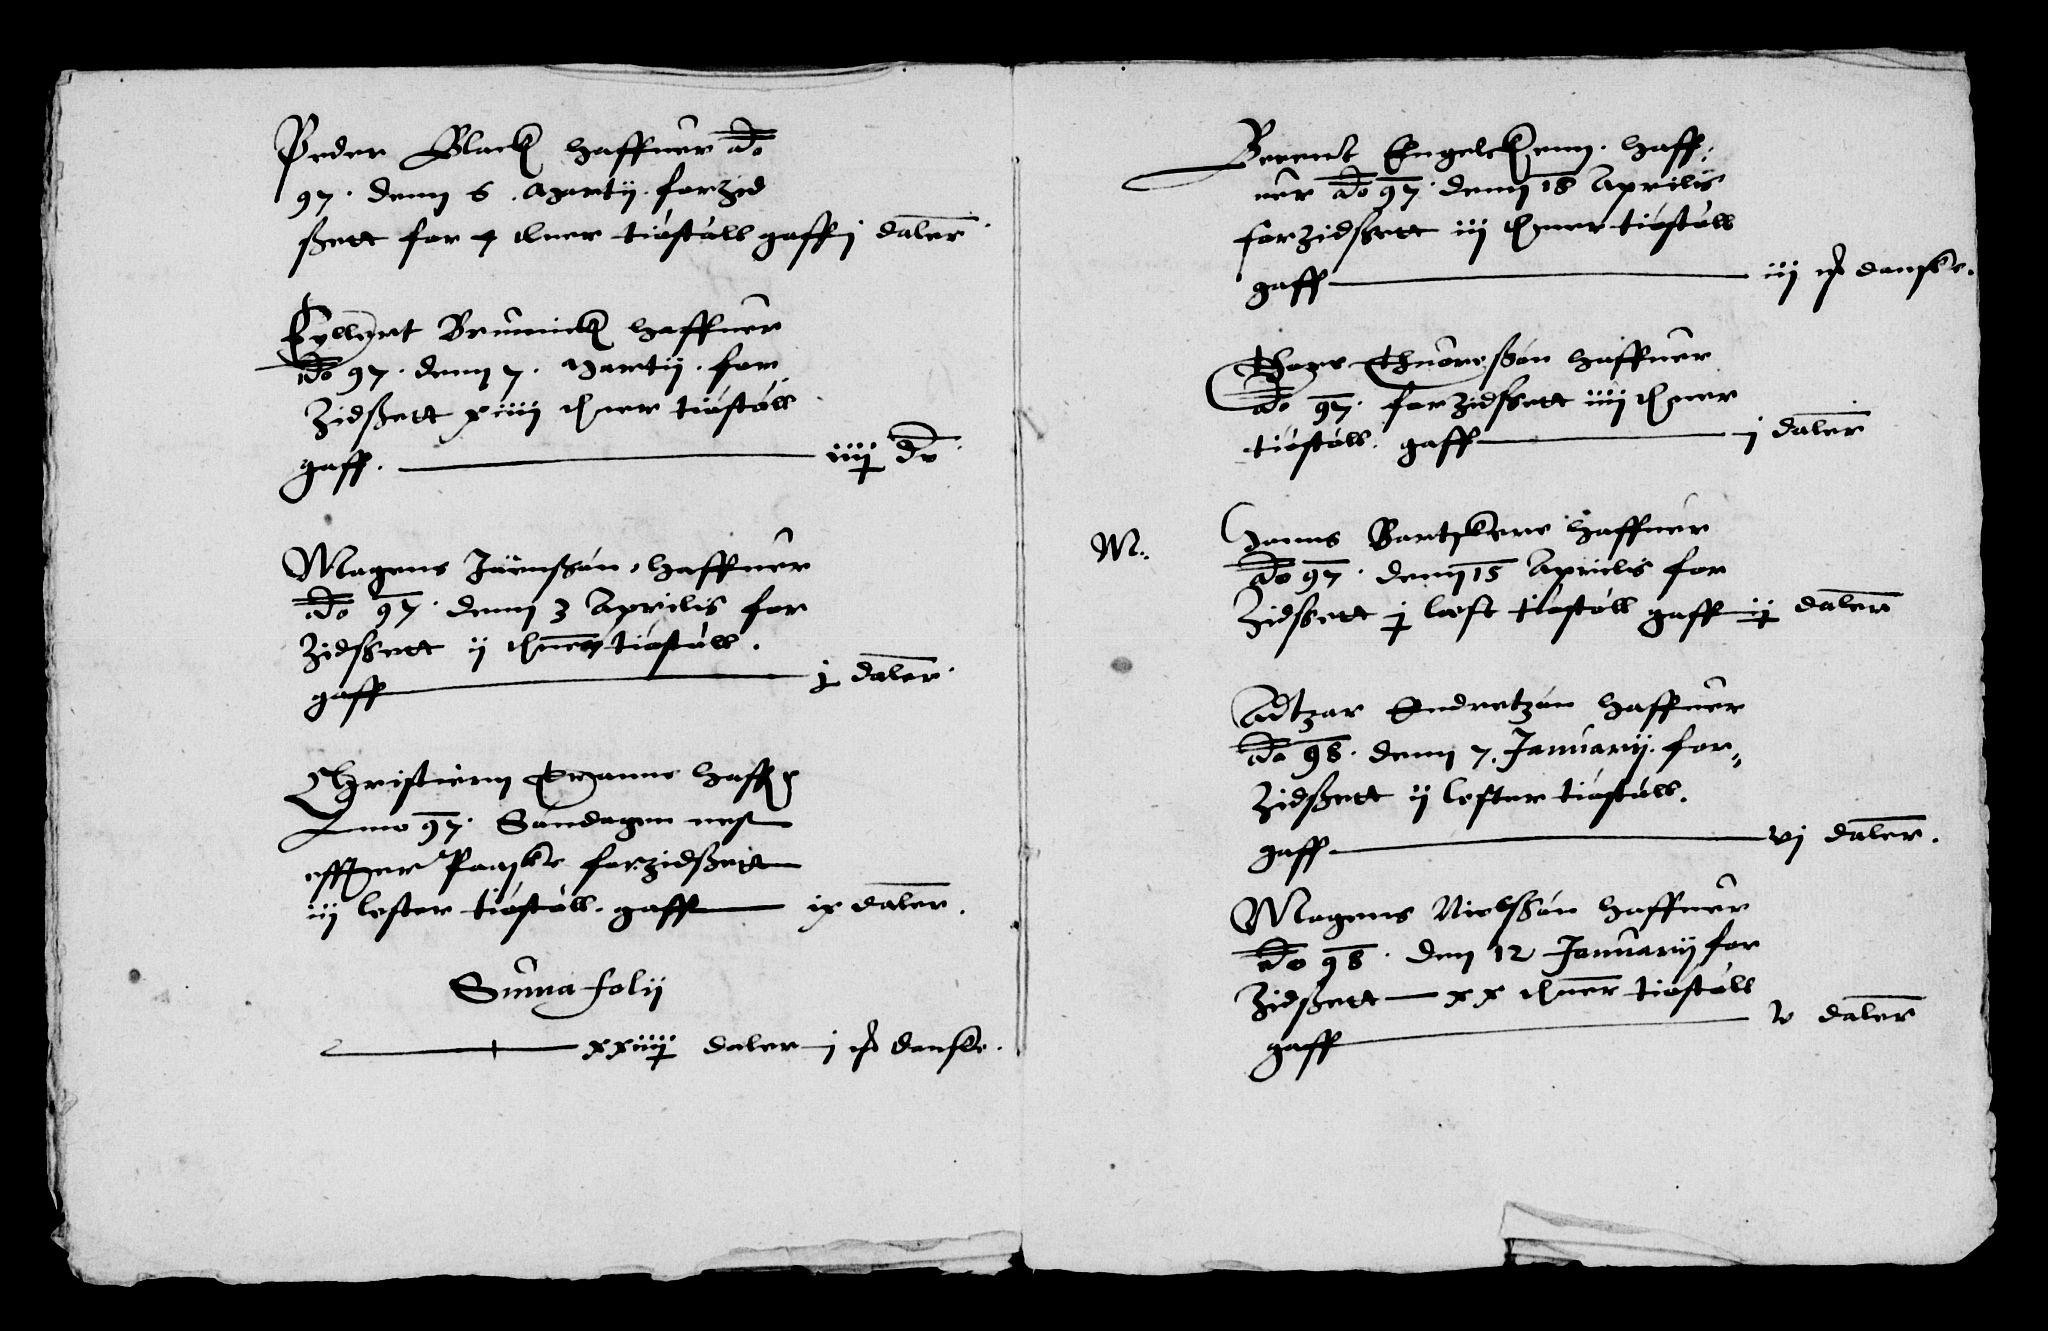 Peder Black haffuer Ao
97. denn 6. Martij forzid
ßett for 4 thner tiøstøll gaff j daler
Eyllert Brunnick haffuer
Ao 97. denn 7. Martij. for
Zidßett xiiij thner tiøstøll
gaff. iiij do
Magens Jørnssøn, haffuer
Ao 97. denn 3 Aprilis for
Zidßett ij thner tiøstøll.
gaff j daler.
Christiern haff
Anno 97. Søndagen nest
effter Paaske forzidßett
iij lester tiøstøll. gaff ix daler.
Suma folij
xxiiij daler j danske.
Berent Engelckenn. haff:
uer Ao 97. denn 18 Aprilis
forZidßett iij thner tiøstøll
gaff iij danske.
Thuoreßøn haffuer
Ao 97. forZidßett iiij thner
tiøstøll. gaff j daler
M. Hanns Bartskere haffuer
Ao 97. denn 15 Aprilis for
Zidßett j læst tiøstøll gaff ij daler
Adtzar Endretzøn haffuer
Ao 98. denn 7. Januarij. for-
Zidßett ij lester tiøstøll.
gaff vj daler.
Magens Nielssøn haffuer
Ao 98. den 12 Januarij for
Zidßett xx thner tiøstøll
gaff v daler